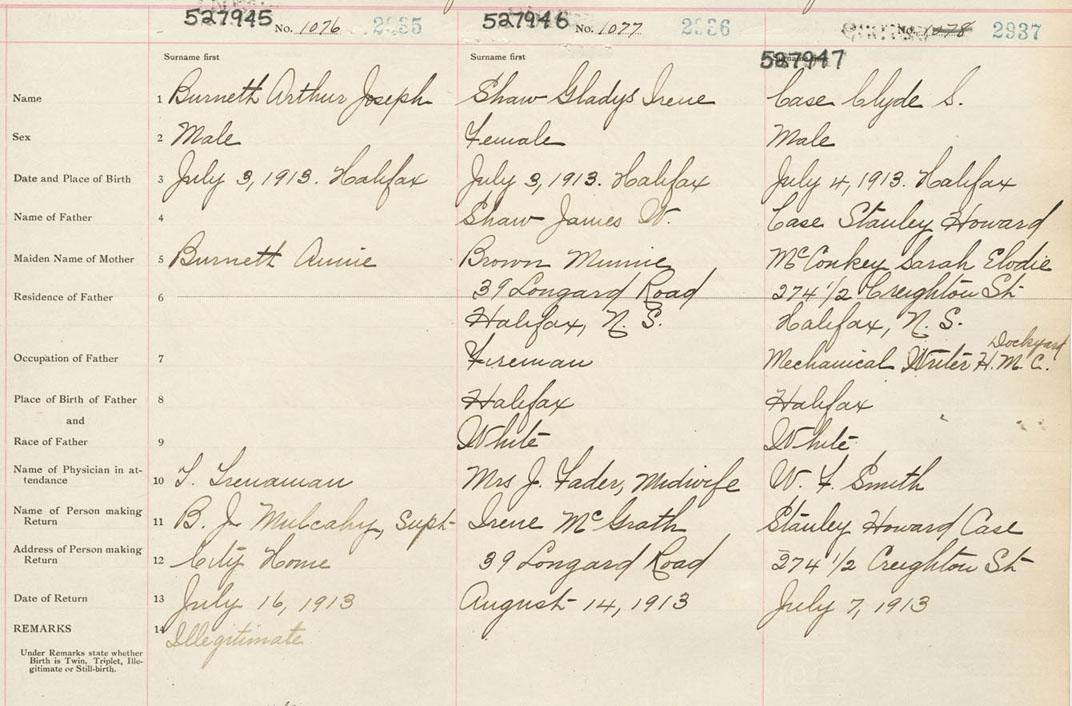 527945 527946
No. 1076 2935 No. 1077 2936 No. 1078 2937
527947
Surname first Surname first
Name 1 Burnett Arthur Joseph Shaw Gladys Irene Case Clyde S.
Sex 2 Male Female Male
Date and Place of Birth 3 July 3, 1913. Halifax July 3, 1913. Halifax July 4, 1913. Halifax
Name of Father 4 Shaw James W. Case Stanley Howard
Maiden Name of Mother 5 Burnett Annie Brown Minnie McConkey Sarah Elodie
Residence of Father 6 39 Longard Road 274 1/2 Creighton St
Halifax, N. S. Halifax, N. S.
Dockyard
Occupation of Father 7 Fireman Mechanical Writer H. M. C.
Place of Birth of Father 8 Halifax Halifax
and
Race of Father 9 White White
Name of Physician in at-
tendance 10 T. Trenaman Mrs J. Fader, Midwife W. F. Smith
Name of Person making
Return 11 B. J. Mulcahy, Supt Irene McGrath Stanley Howard Case
Address of Person making
Return 12 City Home 39 Longard Road 274 1/2 Creighton St
Date of Return 13 July 16, 1913 August 14, 1913 July 7, 1913
REMARKS 14 Illegitimate
Under Remarks state whether
Birth is Twin, Triplet, Ille-
gitimate or Still-birth.